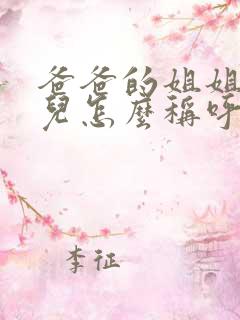 爸爸的姐姐
兒怎麼稱呼
李征